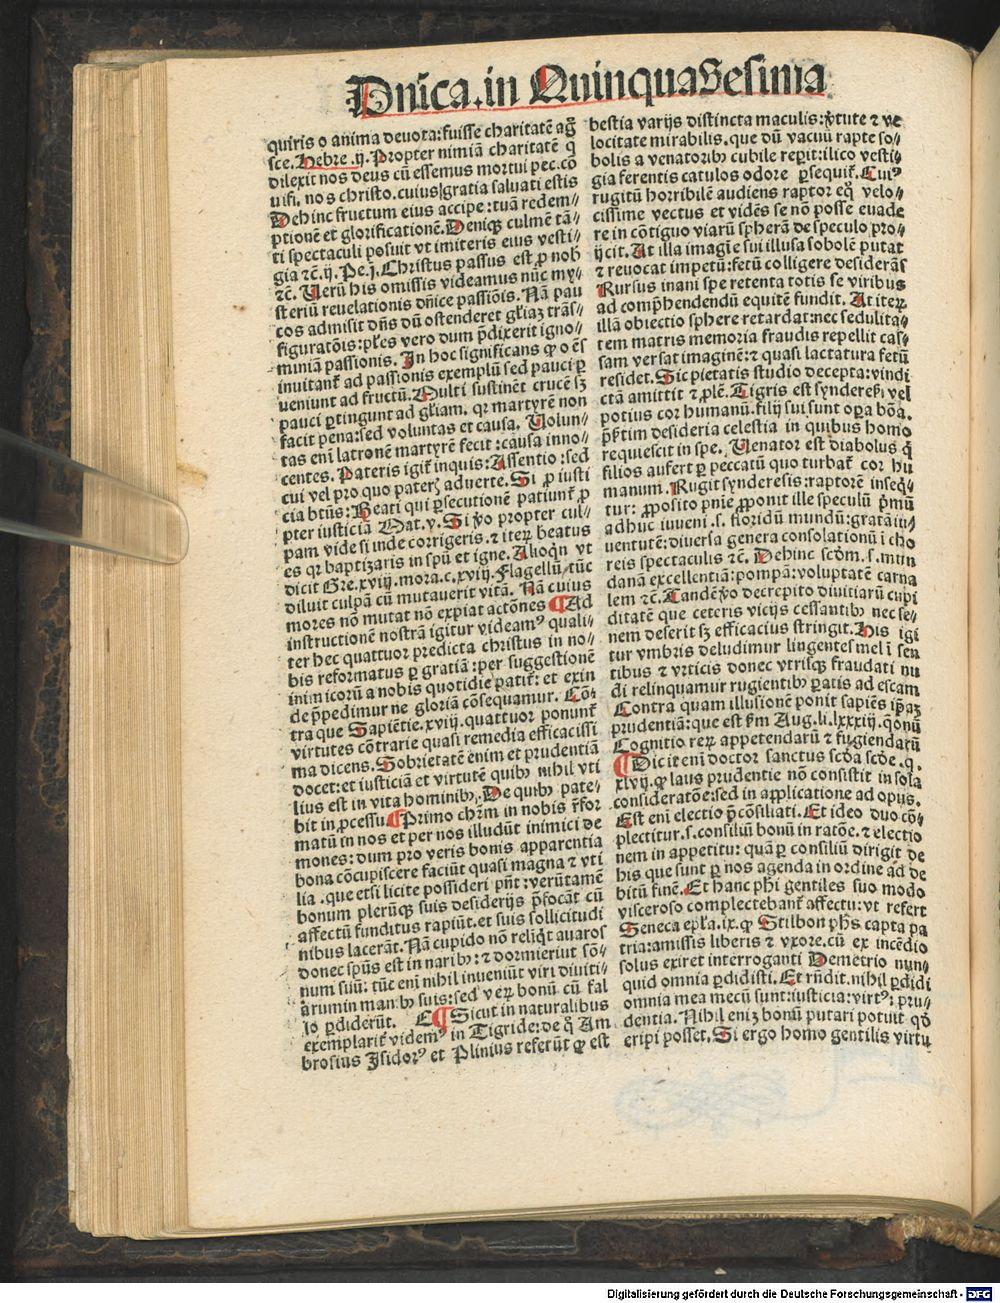 Dnica.in Quinquagesima
quiris o anima deuota:fuisse charitatē aḡ
sce.Hebre.ij.Propter nimiā charitatē q
dilexit nos deus cū essemus mortui pec.cō
uifi.nos christo.cuius gratia saluati estis
Dehinc fructum eius accipe:tuā redem⸗
ptionē et glorificationē.Deniqꝫ culmē tā⸗
ti spectaculi posuit vt imiteris eius vesti⸗
gia ꝛc̄.ij.Pe.j.Christus passus est ꝓ nob̄
ꝛc̄. Uerū his omissis videamus nūc my⸗
steriū reuelationis dn̄ice passiōis. Nā pau
cos admisit dn̄s dū ostenderet gl̄iaꝫ trās⸗
figuratōis:pl̄es vero dum p̄dixerit igno⸗
miniā passionis. In hoc significans ꝙ oēs
inuitant᷑ ad passionis exemplū sed pauci ꝑ
ueniunt ad fructū.Multi sustinēt crucē sꝫ
pauci ꝑtingunt ad gl̄iam. qꝛ martyrē non
facit pena:sed voluntas et causa. Uolun⸗
tas enī latronē martyrē fecit:causa inno⸗
centes. Pateris igit᷑ inquis:Assentio:sed
cui vel pro quo pateꝝ aduerte.Si ꝓ iusti
cia btūs:Beati qui ꝑsecutionē patiunt᷑ ꝓ
pter iusticiā Mat.v.Si ꝟo propter cul⸗
pam vide si inde corrigeris.ꝛ iteꝝ beatus
es qꝛ baptizaris in spū et igne.Alioqn̄ vt
dicit Gre.xviij.mora.c.xviij.Flagellū tūc
diluit culpā cū mutauerit vitā. Nā cuius
mores nō mutat nō expiat actōnes ¶Ad
instructionē nostrā igitur videamꝰ quali⸗
ter hec quattuor predicta christus in no⸗
bis reformatus ꝑ gratiā:per suggestionē
inimicorū a nobis quotidie ꝑatit᷑:et exin
de p̄pedimur ne gloriā cōsequamur. Cō⸗
tra que Sapiētie.xviij.quattuor ponunt᷑
virtutes cōtrarie quasi remedia efficacissi
ma dicens.Sobrietatē enim et prudentiā
docet:et iusticiā et virtutē quibꝫ nihil vti
lius est in vita hominibꝫ.De quibꝫ pate⸗
bit in ꝓcessu.¶Primo chr̄m in nobis p̄for
matū in nos et per nos illudūt inimici de
mones:dum pro veris bonis apparentia
bona cōcupiscere faciūt quasi magna ꝛ vti
lia.que etsi licite possideri pn̄t:verūtamē
bonum pleruꝫqꝫ suis desiderijs p̄focāt cū
affectū funditus rapiūt.et suis sollicitudi
nibus lacerāt.Nā cupido nō reliq̄t auaros
donec spūs est in naribꝫ:ꝛ dormierūt sō⸗
num suū:tūc enī nihil inueniūt viri diuiti⸗
arum in manibꝫ suis:sed veꝝ bonū cū fal
so ꝑdiderūt. E¶Sicut in naturalibus
exemplarit᷑ videmꝰ in Tigride:de q̄ Am
brosius Isidorꝰ et Plinius referūt ꝙ est
bestia varijs distincta maculis:ꝟtute ꝛ ve
locitate mirabilis.que dū vacuū rapte so⸗
bolis a venatoribꝫ cubile reꝑit:ilico vesti⸗
gia ferentis catulos odore ꝑsequit᷑.Cuiꝰ
rugitū horribilē audiens raptor eq̊ velo⸗
cissime vectus et vidēs se nō posse euade
re in cōtiguo viarū spherā de speculo pro⸗
ijcit.At illa imagīe sui illusa sobolē putat
ꝛ reuocat impetū:fetū colligere desiderās
Rursus inani spe retenta totis se viribus
ad comp̄hendendū equitē fundit. At iteꝝ
illā obiectio sphere retardat:nec sedulita⸗
tem matris memoria fraudis repellit cas⸗
sam versat imaginē:ꝛ quasi lactatura fetū
residet.Sic pietatis studio decepta:vindi
ctā amittit ꝛ ꝓlē.Tigris est synderesꝭ vel
potius cor humanū.filij sui sunt oꝑa bōa.
p̄sertim desideria celestia in quibus homo
requiescit in spe. Uenator est diabolus q̄
filios aufert ꝑ peccatū quo turbat᷑ cor hu
manum.Rugit synderesis:raptorē inseq̄⸗
tur: ꝓposito pn̄ie ꝓponit ille speculū p̄mū
adhuc iuueni.s. floridū mundū:gratā iu⸗
uentutē:diuersa genera consolationū ī cho
reis spectaculis ꝛc̄. Dehinc scd̄m.s.mun
danā excellentiā:pompā:voluptatē carna
lem ꝛc̄.Tandē ꝟo decrepito diuitiarū cupi
ditatē que ceteris vicijs cessantibꝫ nec se⸗
nem deserit sꝫ efficacius stringit.His igi
tur vmbris deludimur lingentes mel ī sen
tibus ꝛ vrticis donec vtrisqꝫ fraudati nu
di relinquamur rugientibꝫ ꝑatis ad escam
Contra quam illusionē ponit sapiēs ip̄aꝫ
prudentiā:que est ẜm Aug.li.lxxxiij.qōnū
Cognitio reꝝ appetendarū ꝛ fugiendarū
¶Dicit enī doctor sanctus scd̄a scd̄e.q.
xlvij.ꝙ laus prudentie nō consistit in sola
consideratōe:sed in applicatione ad opus.
Est enī electio p̄cōsiliati. Et ideo duo cō⸗
plectitur.s.consiliū bonū in ratōe.ꝛ electio
nem in appetitu:quā ꝑ consiliū dirigit de
his que sunt ꝑ nos agenda in ordine ad de
bitū finē.Et hanc ph̄i gentiles suo modo
visceroso complectebant᷑ affectu:vt refert
Seneca epl̄a.ix.ꝙ Stilbon ph̄s capta pa
tria:amissis liberis ꝛ vxore.cū ex incēdio
solus exiret interroganti Demetrio nun⸗
quid omnia ꝑdidisti.Et rn̄dit.nihil ꝑdidi
omnia mea mecū sunt:iusticia:virtꝰ:pru⸗
dentia.Nihil enīꝫ bonū putari potuit qd̄
eripi posset.Si ergo homo gentilis virtu
Digitalisierung gefördert durch die Deutsche Forschungsgemeinschaft - DFG